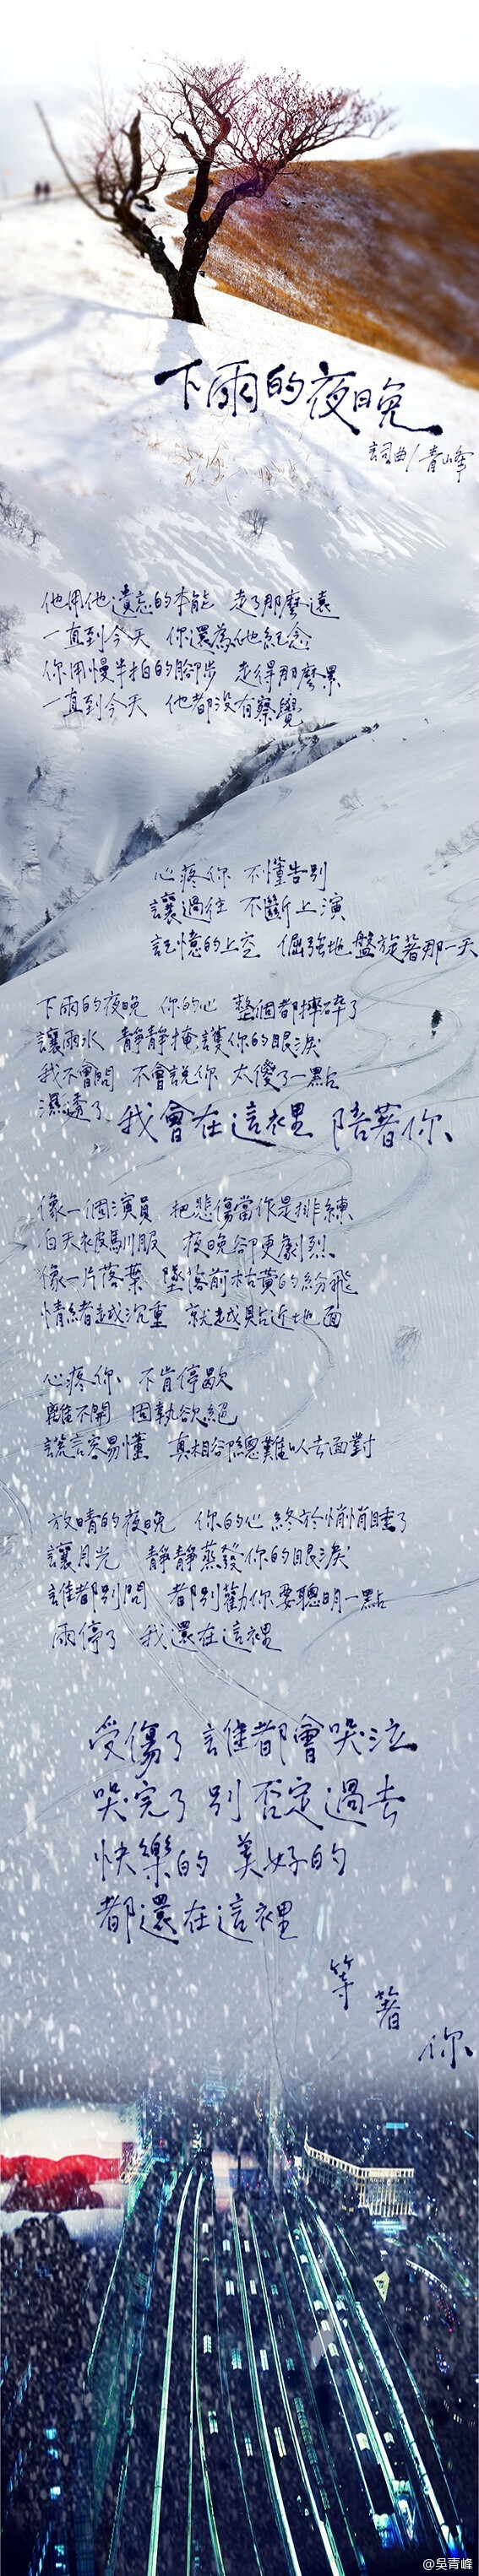 下雨的夜晚
詞曲/青峰
他用他遺忘的本能 走了那麼遠
一直到今天 你還為他紀念
你用慢半拍的腳步 走得那麼累
一直到今天 他都沒有察覺
心疼你 不懂告別
讓過往 不斷上演
記憶的上空 倔強地盤旋著那一天
下雨的夜晚 你的心 整個都摔碎了
讓雨水 靜靜掩護你的眼淚
我不會問 不會說你 太傻了一點
濕透了 我會在這裡 陪著你
像一個演員 把悲傷當作是排練
白天被馴服 夜晚卻更劇烈
像一片落葉 墜落前枯黃的紛飛
情緒越沉重 就越貼近地面
心疼你 不肯停歇
離不開 固執欲絕
謊言容易懂 真相卻總難以去面對
放晴的夜晚 你的心 終於悄悄睡了
讓月光 靜靜蒸發你的眼淚
誰都別問 都別勸你要聰明一點
雨停了 我還在這裡
受傷了 誰都會哭泣
哭完了 別否定過去
快樂的 美好的
都還在這裡
等著你
@吳青峰